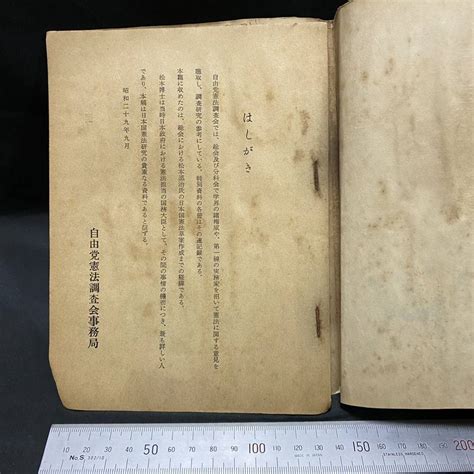 はしがき
自由党憲法調査会では、総会及び分科会で学界の権威や、第一線の実務家を招いて憲法に関する意見を
聴取し、調査研究の参考にしている。特別資料の各冊はその速記録である。
本篇に収めたのは、総会における松本烝治氏の日本国憲法草案作成までの経緯である。
松本博士は当時日本政府における憲法担当の国務大臣として、その間の事情の機密につき、最も詳しい人
であり、本稿は日本国憲法研究の貴重なる資料であると信ずる。
昭和二十九年九月
自由党憲法調査会事務局
10 20 30 40 50 60 70 80 90 100 110 120 130 140 150 160 170 180 190 200
No.S
STAINLESS HARDENED